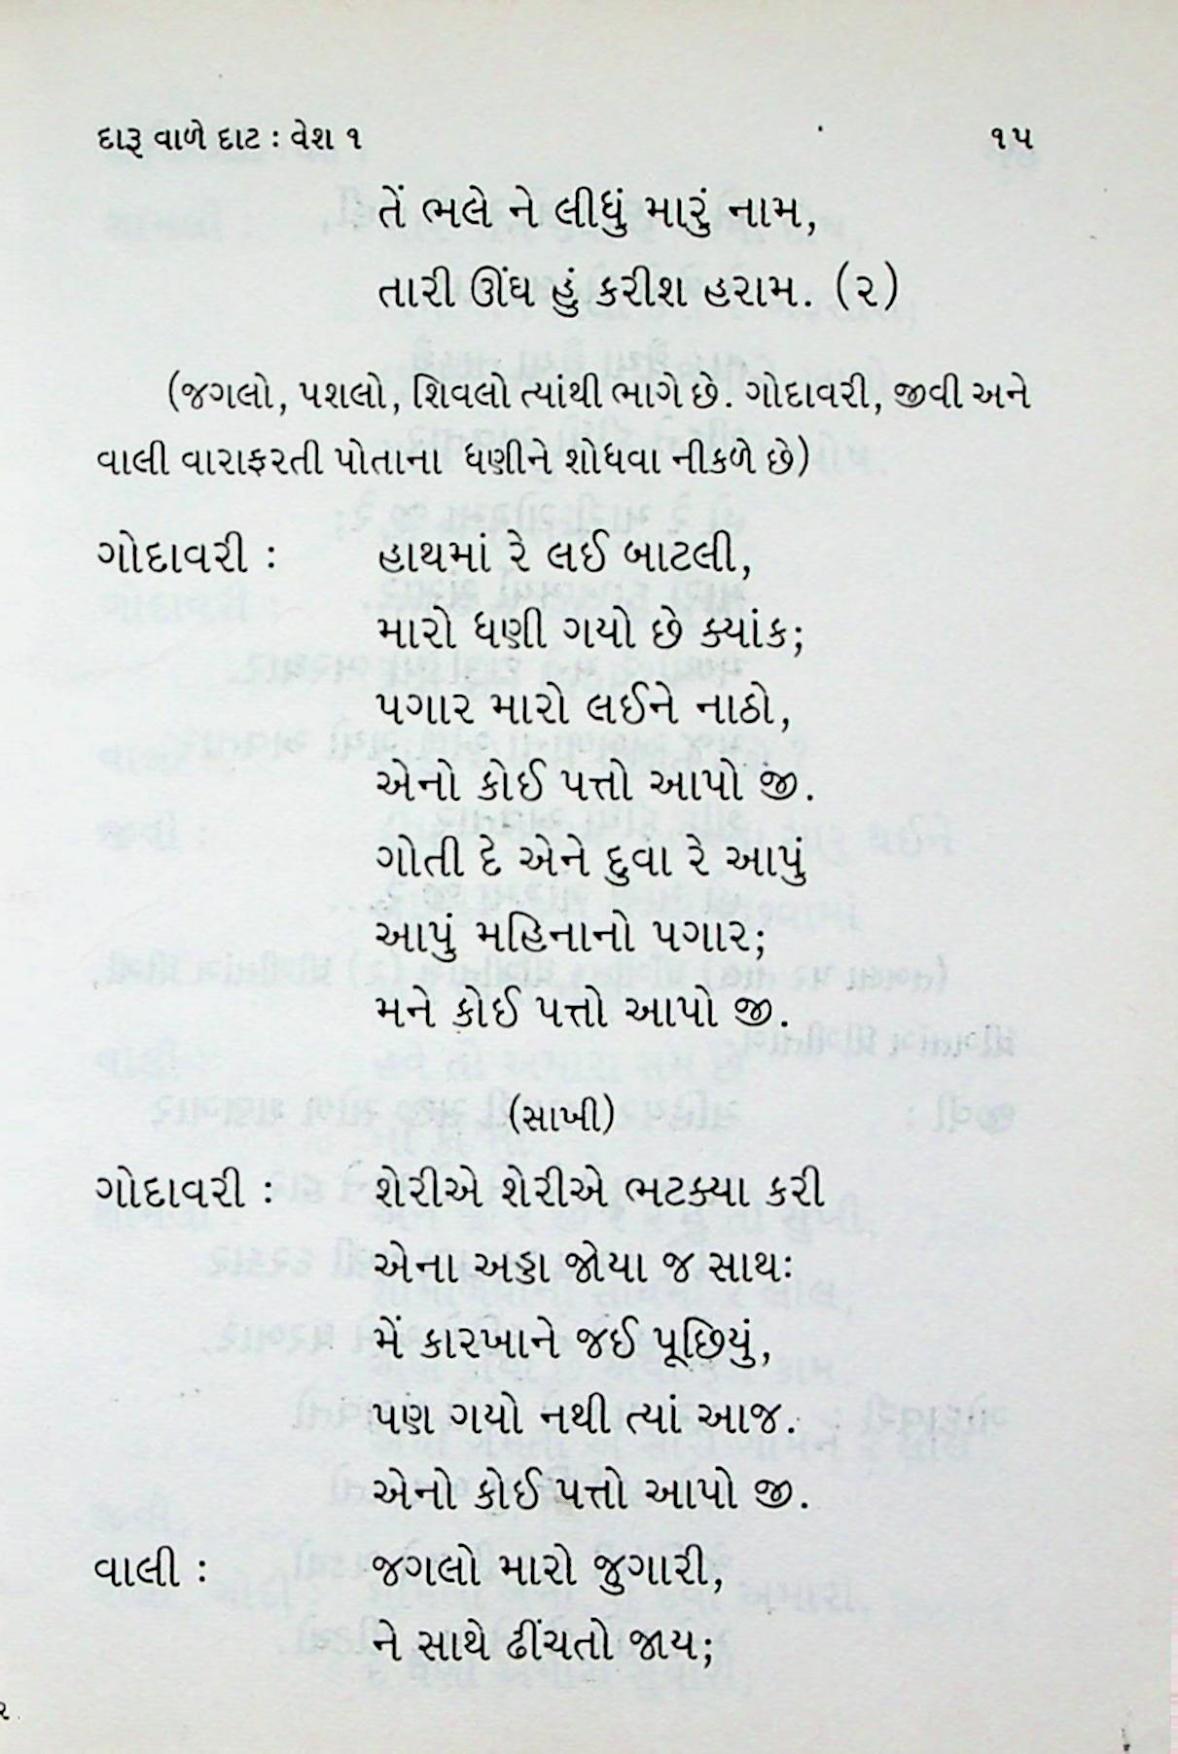 દારૂ વાળે દાટ : વેશ ૧ ૧૫
તેં ભલે ને લીધું મારું નામ,
તારી ઊંઘ હું કરીશ હરામ. (૨)
(જગલો, પશલો, શિવલો ત્યાંથી ભાગે છે. ગોદાવરી, જીવી અને
વાલી વારાફરતી પોતાના ધણીને શોધવા નીકળે છે)
ગોદાવરી : હાથમાં રે લઈ બાટલી,
મારો ધણી ગયો છે ક્યાંક;
પગાર મારો લઈને નાઠો,
એનો કોઈ પત્તો આપો જી.
ગોતી દે એને દુવા રે આપું
આપું મહિનાનો પગાર;
મને કોઈ પત્તો આપો જી.
(સાખી)
ગોદાવરી : શેરીએ શેરીએ ભટક્યા કરી
એના અડ્ડા જોયા જ સાથઃ
મેં કારખાને જઈ પૂછિયું,
પણ ગયો નથી ત્યાં આજ.
એનો કોઈ પત્તો આપો જી.
વાલી : જગલો મારો જુગારી,
ને સાથે ઢીંચતો જાય;
૨